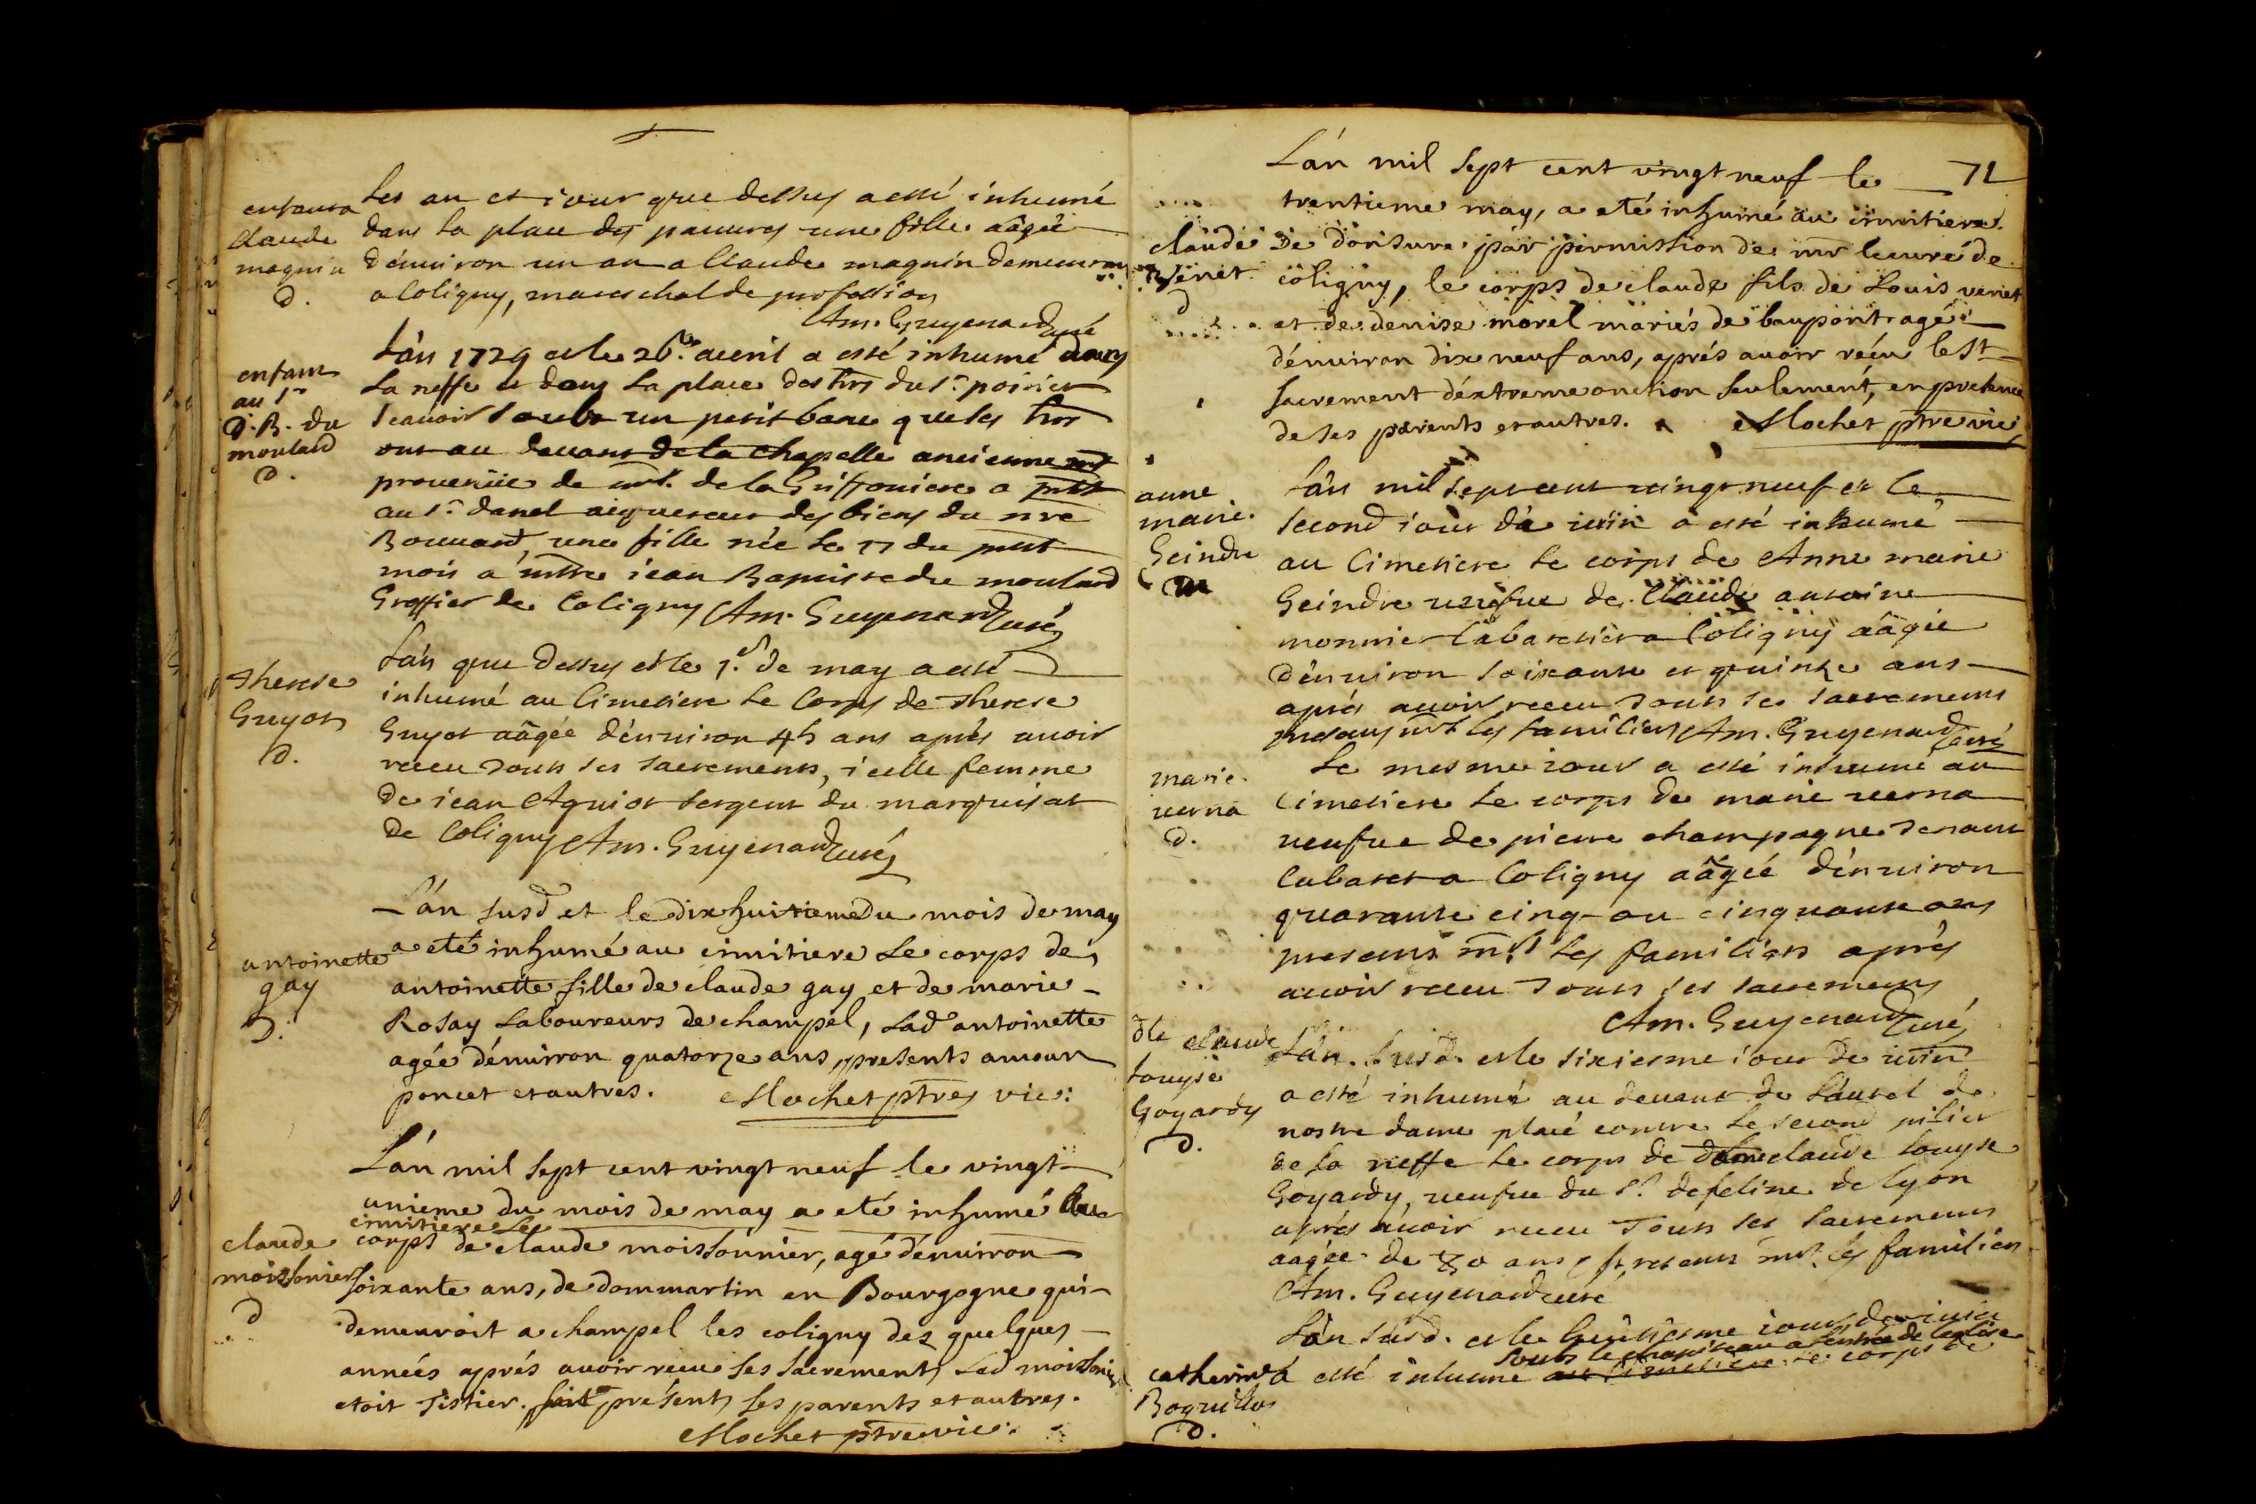 Les an et iour que dessus a esté inhumé
enfant a
dans la place des pauures une fille aâgée
Claude
d'enuiron un an a Claude maguin demeurant
maguin
a Coligny, mareschal de profession
D.
Am. Guyenard curé
L'an 1729 et le 26.e auril a esté inhumé dans
enfant
la neffe et dans la place des srs du sr poirier
au sr
scauoir soubs un petit banc que les srs
J. B. du
ont au deuant de la chapelle anciennemt
moulard
prouenüe de mr. de la Griffoniere a pnt
D.
au sr danel aiquereur des biens du sire
Bouuard, une fille née le 17 du pnt
mois a mtre iean Baptiste du moulard
Greffier de Coligny Am. Guyenard curé
L'an que dessus et le 1.er de may a esté
Therese
inhumé au Cimetiere le Corps de Therese
Guyot
Guyot aâgée d'enuiron 45 ans aprés auoir
D.
receu tous ses sacrements, icelle femme
de iean Aguiot sergent du marquisat
de Coligny Am. Guyenard curé
L'an susd et le dixhuitieme du mois de may
a eté inhumé au cimitiere le corps de
antoinette
antoinette fille de claude gay et de marie
gay
Rosay Laboureurs de champel, lad antoinette
D.
agée d'enuiron quatorze ans, presents amour
poncet et autres. Mochet ptre vic:
L'an mil sept cent vingt neuf le vingt
unieme du mois de may a eté inhumé au
cimitiere le
claude
corps de claude moissonnier, agé d'enuiron
moissonier
soixante ans, de dommartin en Bourgogne qui
D
demeuroit a champel les coligny dez quelques
années aprés auoir receu ses sacrements led moissonier
etoit Tistier. fait présents ses parents et autres.
Mochet ptre vic:
71
L'an mil sept cent vingt neuf le
trentieme may, a eté inhumé au cimitiere
claude
de dorisure par permission de mr le curé de
Venet
coligny, le corps de claude fils de Louis venet
D
et de denise morel mariés de beaupont agé
d'enuiron dix neuf ans, aprés auoir récu le St
sacrement d'extreme onction seulement, en présence
de ses parents et autres. Mochet ptre vic
anne
L'an mil sept cent vingt neuf et le
marie
second iour de iuin a esté inhumé
Geindre
au Cimetiere le corps de Anne marie
D
Geindre ueufue de Claude antoine
monnier Cabaretier a Coligny aâgée
d'enuiron soixante et quinze ans
aprés auoir receu tous ses sacrements
presans mrs les familiers Am. Guyenard curé
marie
Le mesme iour a esté inhumé au
uerna
Cimetiere le corps de marie uerna
D.
ueufue de pierre champagne tenant
Cabaret a Coligny aâgée d'enuiron
quarante cinq ou cinquante ans
presents mrs les familiers aprés
auoir receu tous ses sacrements
Am. Guyenard curé
dlle claude
L'an susd. et le sixiesme iour de iuin
Louyse
a esté inhumé au deuant de l'autel de
Goyardy
nostre dame placé contre le second pilier
D.
de la neffe le corps de dlle claude Louyse
Goyardy, ueufue du Sr. defeline de Lyon
aprés auoir receu Tous ses sacrements
aagée de 80 ans, presents mrs les familiers
Am. Guyenard curé
L'an susd. et le huitiesme iour de iuin
soubs le chapiteau a l'entrée de l'eglise
catherine
a esté inhumé au Cimetiere le corps de
Boquillos
D.